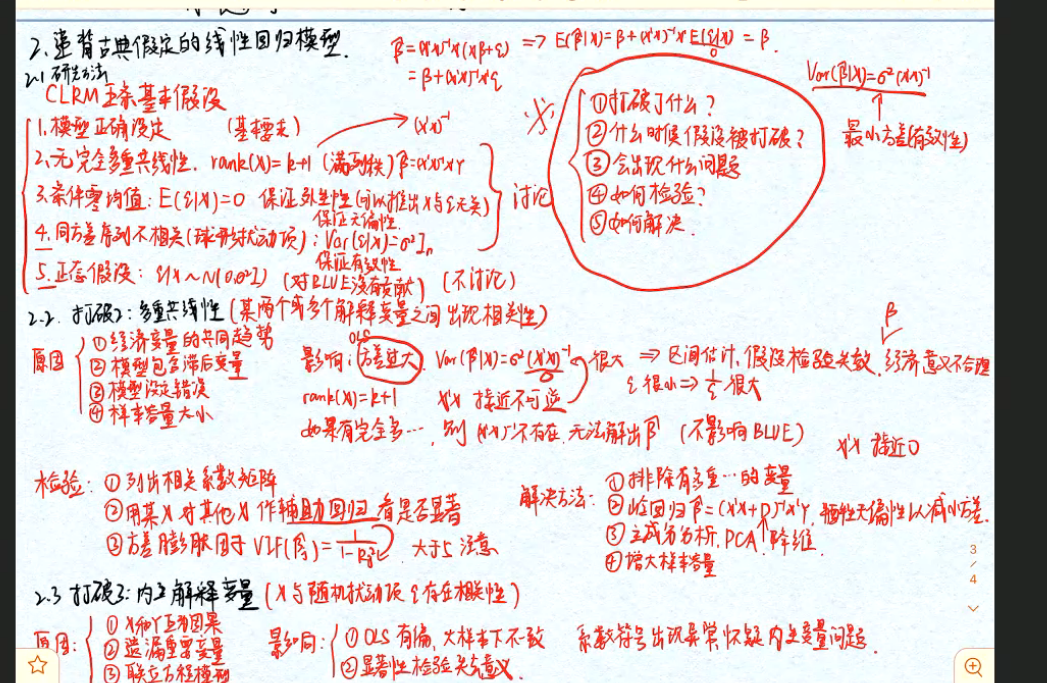 2. 违背古典假定的线性回归模型.
β̂=(X'X)⁻¹X'(Xβ+ε) => E(β̂|X)=β+(X'X)⁻¹X'E(ε|X)=β.
0
=β+(X'X)⁻¹X'ε
2.1 研究方法
CLRM 五条基本假设
1. 模型正确设定 (基本要求)
(X'X)⁻¹
2. 无完全多重共线性. rank(X)=k+1 (满列秩) β̂=(X'X)⁻¹X'Y
3. 条件零均值: E(ε|X)=0 保证外生性(可以推出X与ε无关)
保证无偏性.
4. 同方差序列不相关(球形扰动项): Var(ε|X)=σ²Iₙ
保证有效性
5. 正态假设: ε|X~N(0,σ²I) (对BLUE没有贡献) (不讨论)
讨论
①打破了什么?
②什么时候假设被打破?
③会出现什么问题
④如何检验?
⑤如何解决.
Var(β̂|X)=σ²(X'X)⁻¹
最小方差(有效性)
2.2. 打破2: 多重共线性(某两个或多个解释变量之间出现相关性)
原因
①经济变量的共同趋势
②模型包含滞后变量
③模型设定错误
④样本容量大小
OLS
影响: 方差过大. Var(β̂|X)=σ²(X'X)⁻¹ 很大 => 区间估计, 假设检验失效, 经济意义不合理
0
β̂
ε很小=>1/ε 很大
rank(X)=k+1 X'X 接近不可逆
如果有完全多…, 则(X'X)⁻¹不存在, 无法解出β̂ (不影响BLUE)
X'X 接近0
检验: ①列出相关系数矩阵
②用某X对其他X作辅助回归 看是否显著
③方差膨胀因子 VIF(β̂ⱼ)=1/(1-Rⱼ²) 大于5注意
解决方法: ①排除有多重…的变量
②岭回归 β̂=(X'X+D)⁻¹X'Y, 牺牲无偏性以减小方差.
③主成分分析, PCA 降维
④增大样本容量
2.3 打破3: 内生解释变量(X与随机扰动项ε存在相关性)
原因:
①X和Y互为因果
②遗漏重要变量
③联立方程模型
影响:
①OLS有偏, 大样本下不一致
②显著性检验失去意义.
系数符号出现异常, 怀疑内生变量问题.
3
/
4